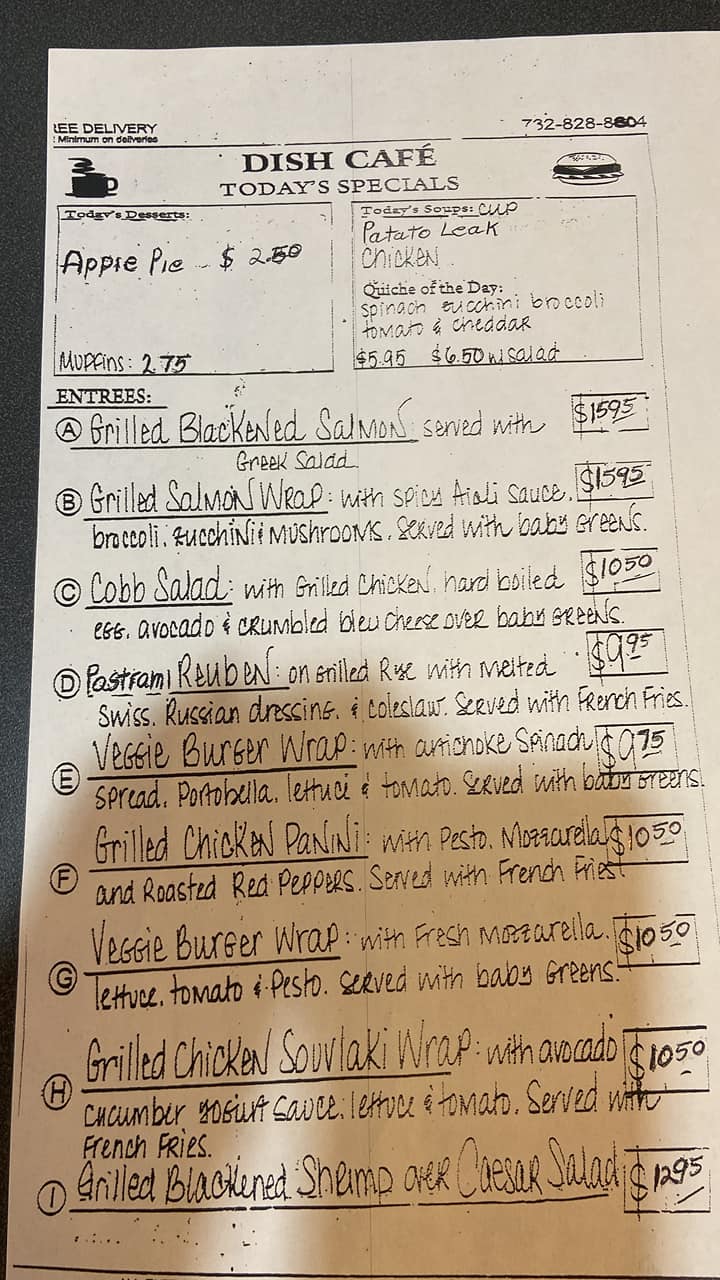 REE DELIVERY
Minimum on deliveries
732-828-8604
DISH CAFÉ
TODAY'S SPECIALS
Today's Desserts:
Apple Pie - $ 2.50
Muffins: 2.75
Today's Soups: CUP
Patato Leak
Chicken
Quiche of the Day:
spinach zucchini broccoli
tomato & cheddar
$5.95 $6.50 w/salad
ENTREES:
A Grilled Blackened Salmon served with $15.95
Greek Salad
B Grilled Salmon Wrap: with spicy Aioli Sauce, $15.95
broccoli, zucchini & mushrooms. Served with baby Greens.
C Cobb Salad: with Grilled Chicken, hard boiled $10.50
egg, avocado & crumbled bleu cheese over baby Greens.
D Pastrami Reuben: on Grilled Rye with melted $9.95
Swiss, Russian dressing, & coleslaw. Served with French Fries.
E Veggie Burger Wrap: with artichoke Spinach $9.75
spread, Portobella, lettuce & tomato. Served with baby Greens.
F Grilled Chicken Panini: with Pesto, Mozzarella $10.50
and Roasted Red Peppers. Served with French Fries.
G Veggie Burger Wrap: with Fresh Mozzarella, $10.50
lettuce, tomato & Pesto. Served with baby Greens.
H Grilled Chicken Souvlaki Wrap: with avocado $10.50
cucumber yogurt sauce, lettuce & tomato. Served with
French Fries.
I Grilled Blackened Shrimp over Caesar Salad $12.95